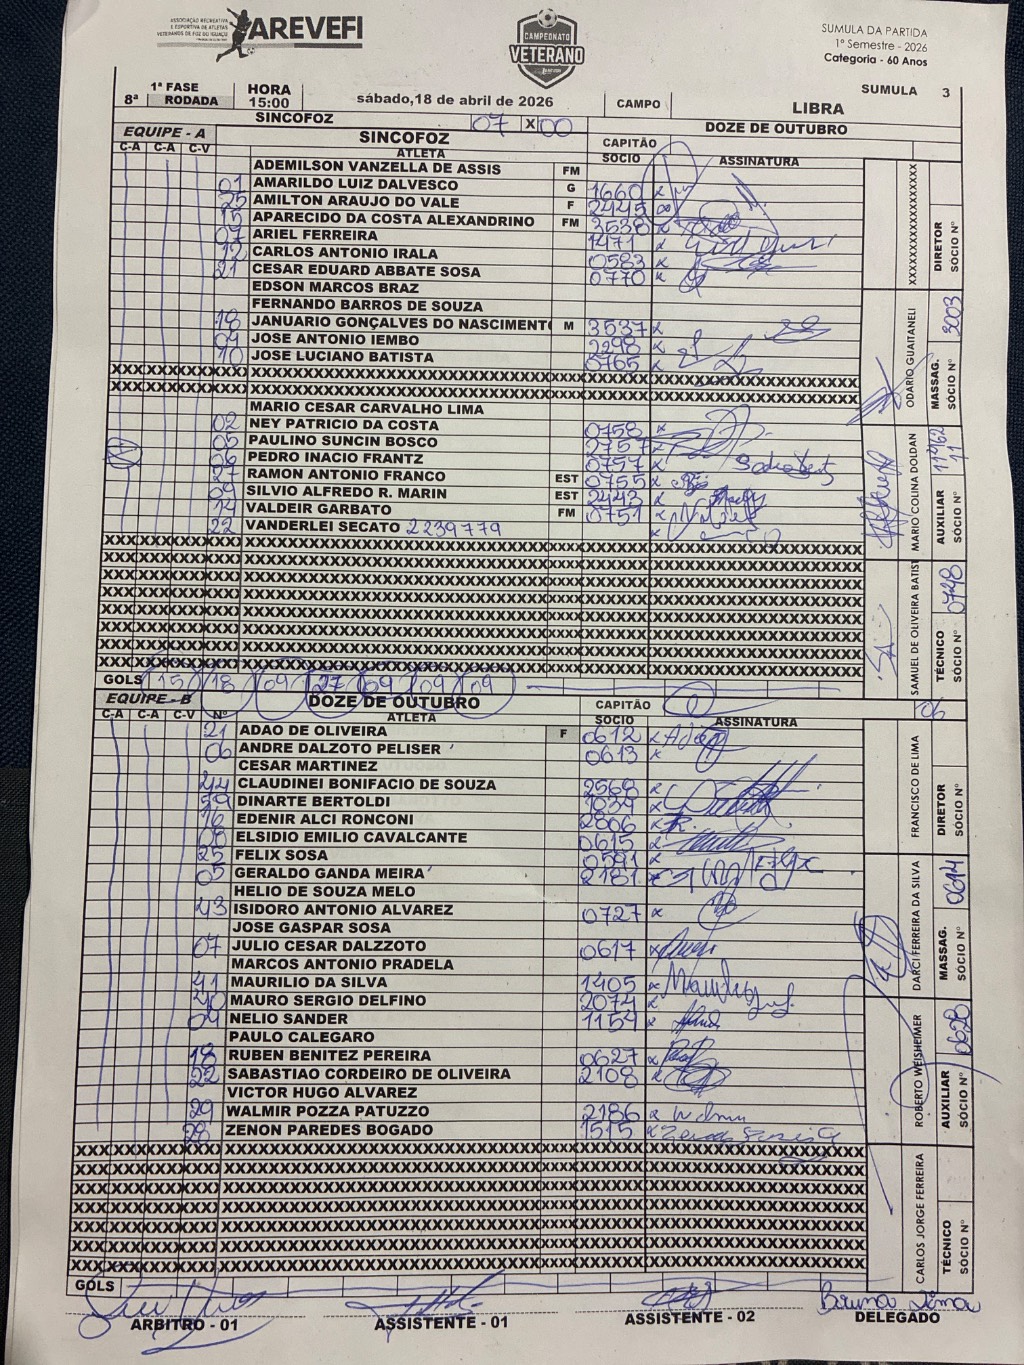 ASSOCIAÇÃO RECREATIVA
E ESPORTIVA DE ATLETAS
VETERANOS DE FOZ DO IGUAÇU
AREVEFI
CAMPEONATO
VETERANO
SUMULA DA PARTIDA
1º Semestre - 2026
Categoria - 60 Anos
1ª FASE HORA SUMULA 3
8ª RODADA 15:00 sábado,18 de abril de 2026 CAMPO LIBRA
SINCOFOZ 07 X 00 DOZE DE OUTUBRO
EQUIPE - A SINCOFOZ CAPITÃO
C-A C-A C-V ATLETA SÓCIO ASSINATURA
ADEMILSON VANZELLA DE ASSIS FM
01 AMARILDO LUIZ DALVESCO G 1660
25 AMILTON ARAUJO DO VALE F 2445
15 APARECIDO DA COSTA ALEXANDRINO FM 3538
ARIEL FERREIRA 1471
12 CARLOS ANTONIO IRALA 0583
21 CESAR EDUARD ABBATE SOSA 0770
EDSON MARCOS BRAZ
FERNANDO BARROS DE SOUZA
18 JANUARIO GONÇALVES DO NASCIMENT M 3537
09 JOSE ANTONIO IEMBO 2298
10 JOSE LUCIANO BATISTA 0765
MARIO CESAR CARVALHO LIMA
02 NEY PATRICIO DA COSTA 0758
05 PAULINO SUNCIN BOSCO 2757
06 PEDRO INACIO FRANTZ 0757
27 RAMON ANTONIO FRANCO EST 0755
09 SILVIO ALFREDO R. MARIN EST 2443
14 VALDEIR GARBATO FM 0751
22 VANDERLEI SECATO 2239779
GOLS 15 18 09 27 09 09 09
XXXXXXXXXXXXXXXXXX DIRETOR SÓCIO Nº
ODARIO GUAITANELI MASSAG. SÓCIO Nº 3003
MARIO COLINA DOLDAN AUXILIAR SÓCIO Nº
SAMUEL DE OLIVEIRA BATIST TÉCNICO SÓCIO Nº 0748
EQUIPE - B DOZE DE OUTUBRO CAPITÃO 06
C-A C-A C-V Nº ATLETA SÓCIO ASSINATURA
21 ADAO DE OLIVEIRA F 0612
06 ANDRE DALZOTO PELISER 0613
CESAR MARTINEZ
44 CLAUDINEI BONIFACIO DE SOUZA 2568
DINARTE BERTOLDI 1039
16 EDENIR ALCI RONCONI 2806
ELSIDIO EMILIO CAVALCANTE 0615
25 FELIX SOSA 0591
05 GERALDO GANDA MEIRA 2181
HELIO DE SOUZA MELO
43 ISIDORO ANTONIO ALVAREZ 0727
JOSE GASPAR SOSA
07 JULIO CESAR DALZZOTO 0617
MARCOS ANTONIO PRADELA
41 MAURILIO DA SILVA 1405
40 MAURO SERGIO DELFINO 2074
04 NELIO SANDER 1154
PAULO CALEGARO
18 RUBEN BENITEZ PEREIRA 0627
22 SABASTIAO CORDEIRO DE OLIVEIRA 2108
VICTOR HUGO ALVAREZ
29 WALMIR POZZA PATUZZO 2186
28 ZENON PAREDES BOGADO 1515
GOLS
FRANCISCO DE LIMA DIRETOR SÓCIO Nº
DARCI FERREIRA DA SILVA MASSAG. SÓCIO Nº 0614
ROBERTO WEISHEIMER AUXILIAR SÓCIO Nº 0628
CARLOS JORGE FERREIRA TÉCNICO SÓCIO Nº
Bruna Lima
ARBITRO - 01 ASSISTENTE - 01 ASSISTENTE - 02 DELEGADO